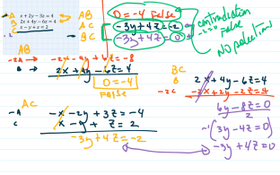 A x + 2y - 3z = 4
B 2x + 4y - 6z = 4
AB
AC
BC
0 = -4 False
-3y + 4z = -2
-3y + 4z = 0
contradiction
-2 = 0 False
NO
AB
-2A → -2x - 4y + 6z = -8
B → 2x + 4y - 6z = 4
0 = -4
False
AC
-A -x - 2y + 3z = -4
C x - y + z = 2
-3y + 4z = -2
BC
B 2x + 4y - 6z = 4
-2C
6y - 8z = 0
2
-1(3y - 4z = 0)
-3y + 4z = 0